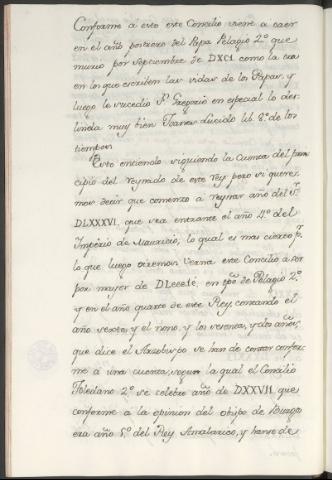 Conforme à esto este Concilio viene a caer
en el año postrero del Papa Pelagio 2º que
murio por septiembre de DXCI. como la cuenta
en los que escriben las vidas de los Papas, y
luego le sucedio Sn. Gregorio en especial lo des-
linda muy bien Juanes Lucido lib. 8º de los
tiempos.
Esto entiendo siguiendo la cuenta del prin-
cipio del reynado de este rey pero si quere-
mos decir que comenzo a reynar año del Sr.
DLXXXVI, que sea entrante el año 4º del
Imperio de Mauricio, lo qual es mas cierto pr.
lo que luego diremos verna este Concilio a ser
por mayo de en tpo de Pelagio 2º.
y en el año quarto de este Rey, contando el
año sexto, y el nono, y los sesenta, y dos años,
que dice el Arzobispo se han de contar confor-
me à una cuenta, segun la qual el Concilio
Toledano 2º se celebro año de DXXVII, que
conforme a la opinion del obispo de Burgos
era año 5º del Rey Amalarico, y hanse de